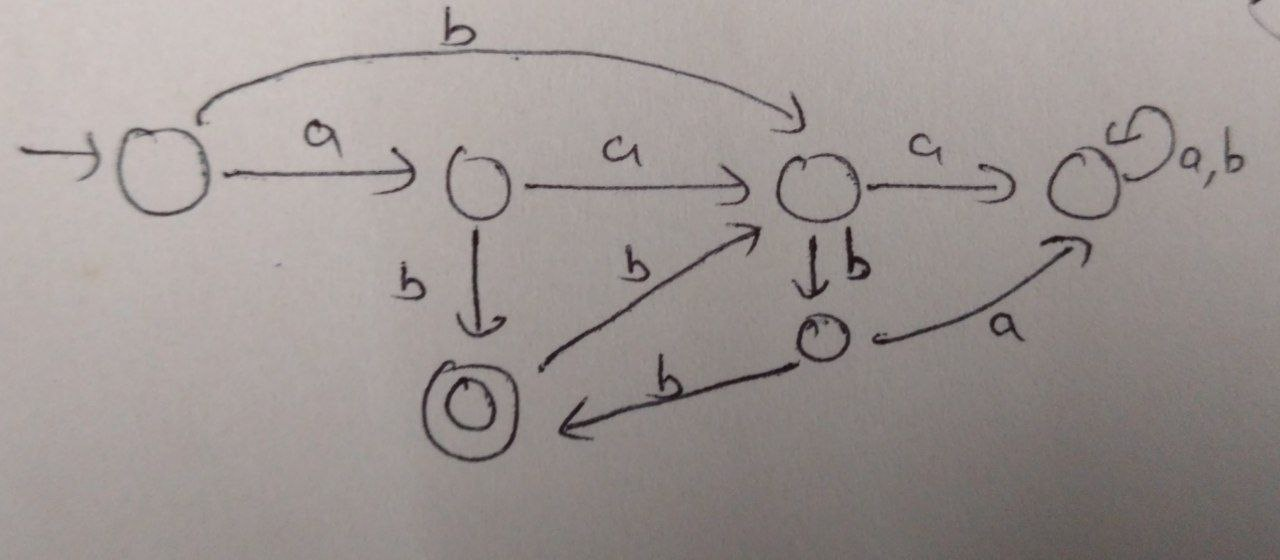 b
a
a
a
a,b
b
b
b
a
b